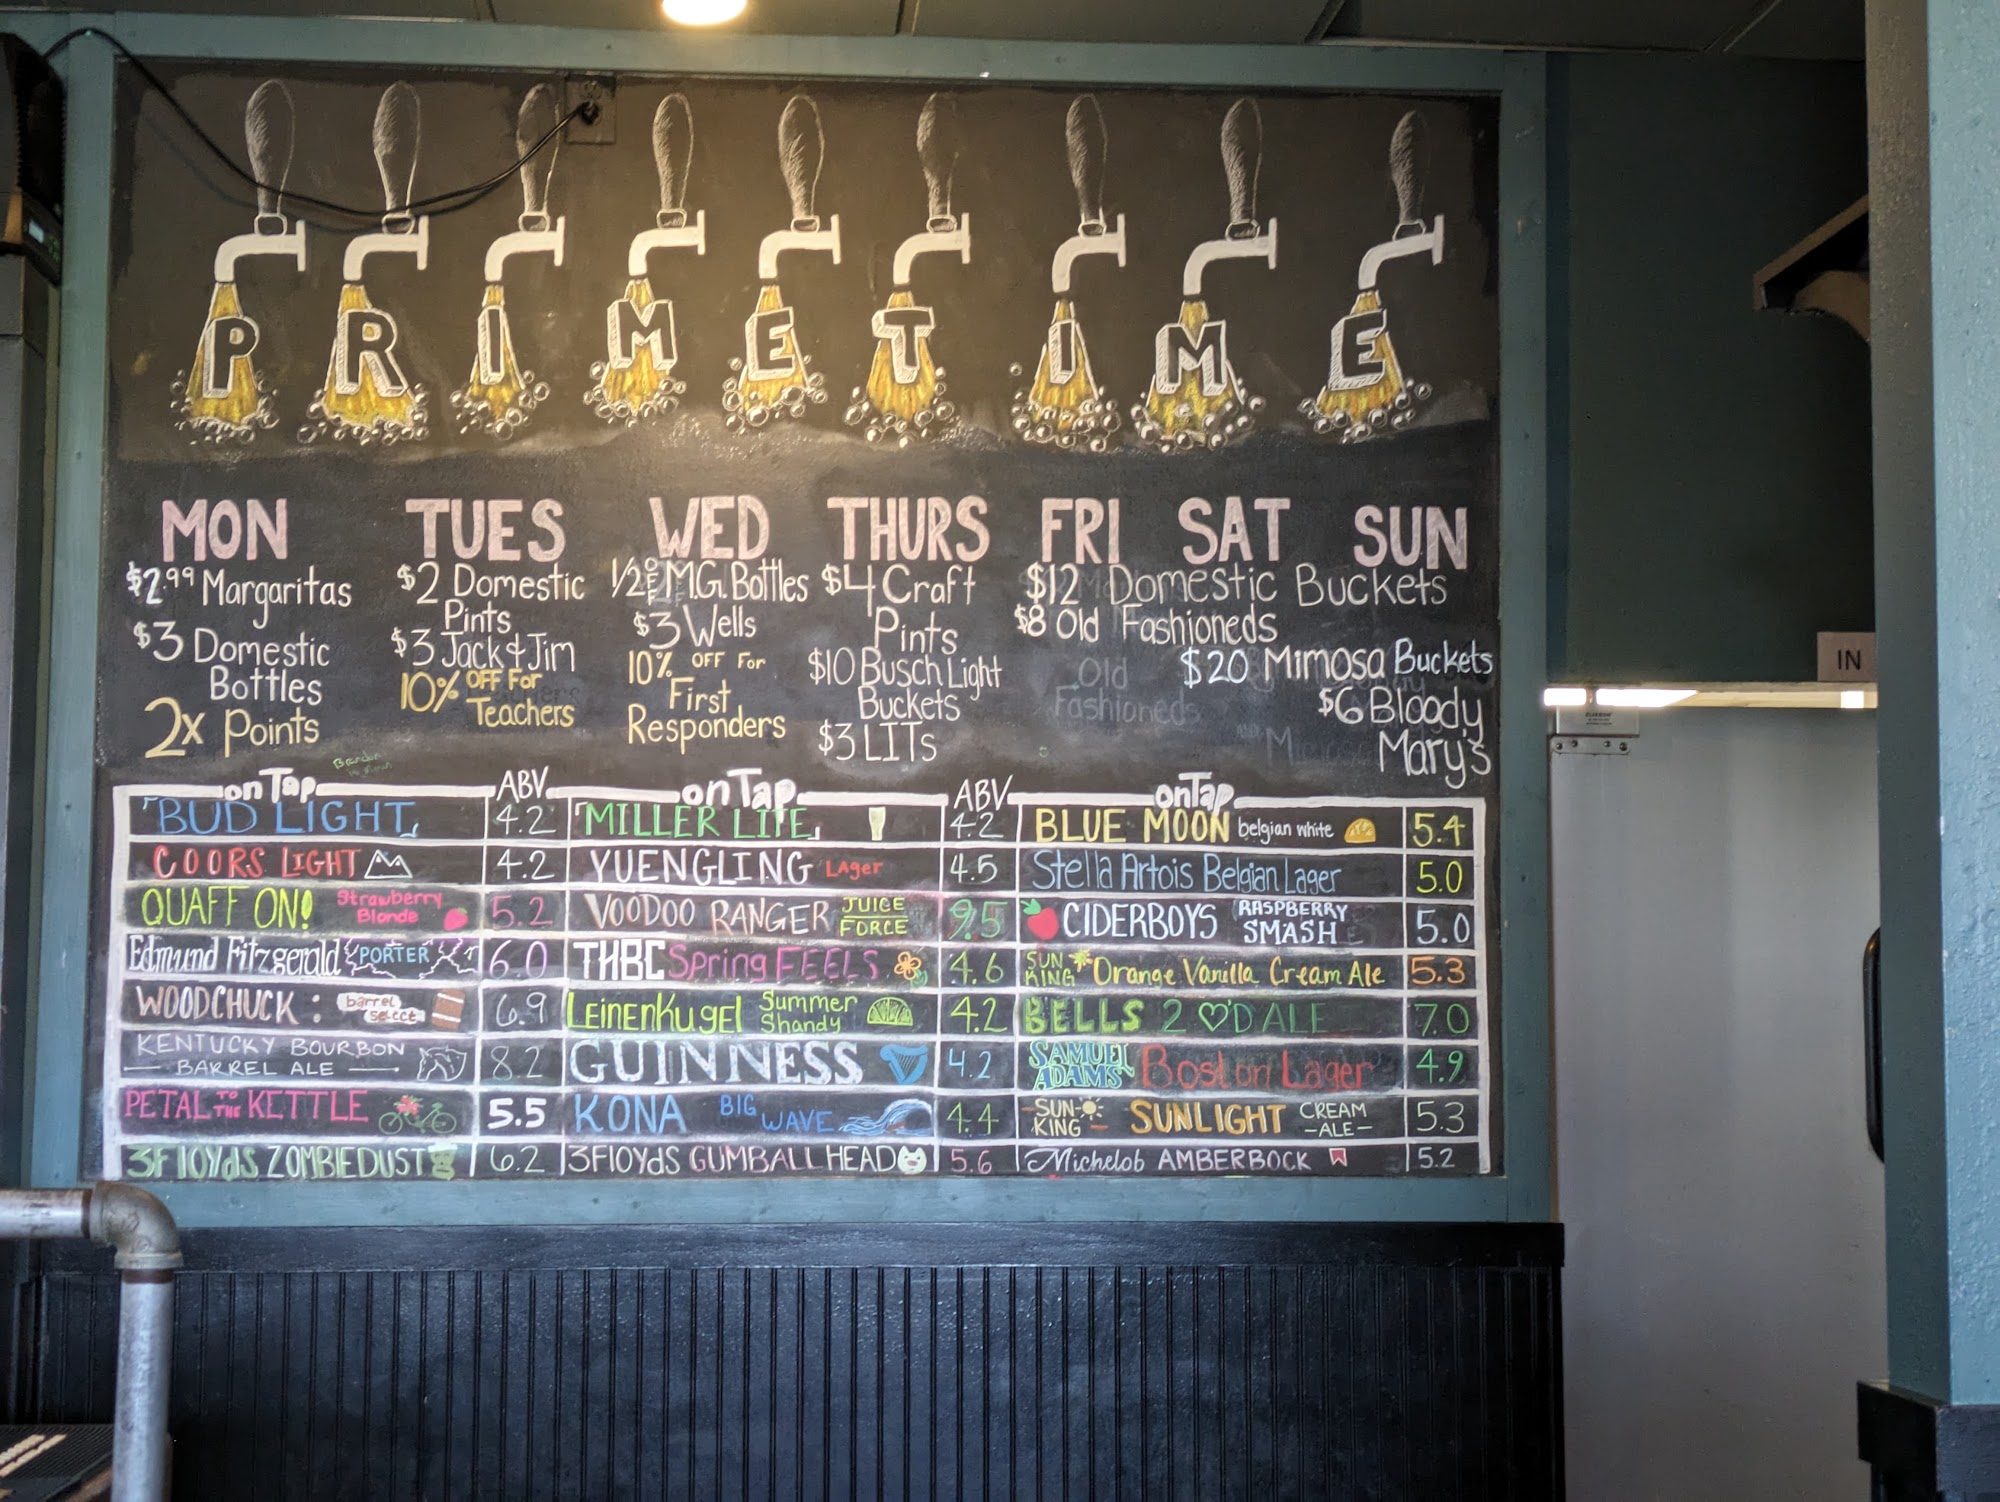 PRIMETIME
MON TUES WED THURS FRI SAT SUN
$2.99 Margaritas
$3 Domestic
Bottles
2x Points
$2 Domestic
Pints
$3 Jack & Jim
10% OFF For
Teachers
1/2 OFF M.G. Bottles
$3 Wells
10% OFF For
First
Responders
$4 Craft
Pints
$10 Busch Light
Buckets
$3 LITs
$12 Domestic Buckets
$8 Old Fashioneds
$20 Mimosa Buckets
$6 Bloody
Mary's
Old
Fashioneds
IN
on Tap ABV on Tap ABV on Tap
BUD LIGHT 4.2 MILLER LITE 4.2 BLUE MOON belgian white 5.4
COORS LIGHT 4.2 YUENGLING LAger 4.5 Stella Artois Belgian Lager 5.0
QUAFF ON! Strawberry Blonde 5.2 VOODOO RANGER JUICE FORCE 9.5 CIDERBOYS RASPBERRY SMASH 5.0
Edmund Fitzgerald PORTER 6.0 THBC Spring FEELS 4.6 SUN KING Orange Vanilla Cream Ale 5.3
WOODCHUCK: barrel select 6.9 LeinenKugel Summer Shandy 4.2 BELLS 2 ♡'D ALE 7.0
KENTUCKY BOURBON BARREL ALE 8.2 GUINNESS 4.2 SAMUEL ADAMS Boston Lager 4.9
PETAL TO THE KETTLE 5.5 KONA BIG WAVE 4.4 SUN KING SUNLIGHT CREAM ALE 5.3
3FlOYdS ZOMBIEDUST 6.2 3FlOYdS GUMBALLHEAD 5.6 Michelob AMBERBOCK 5.2